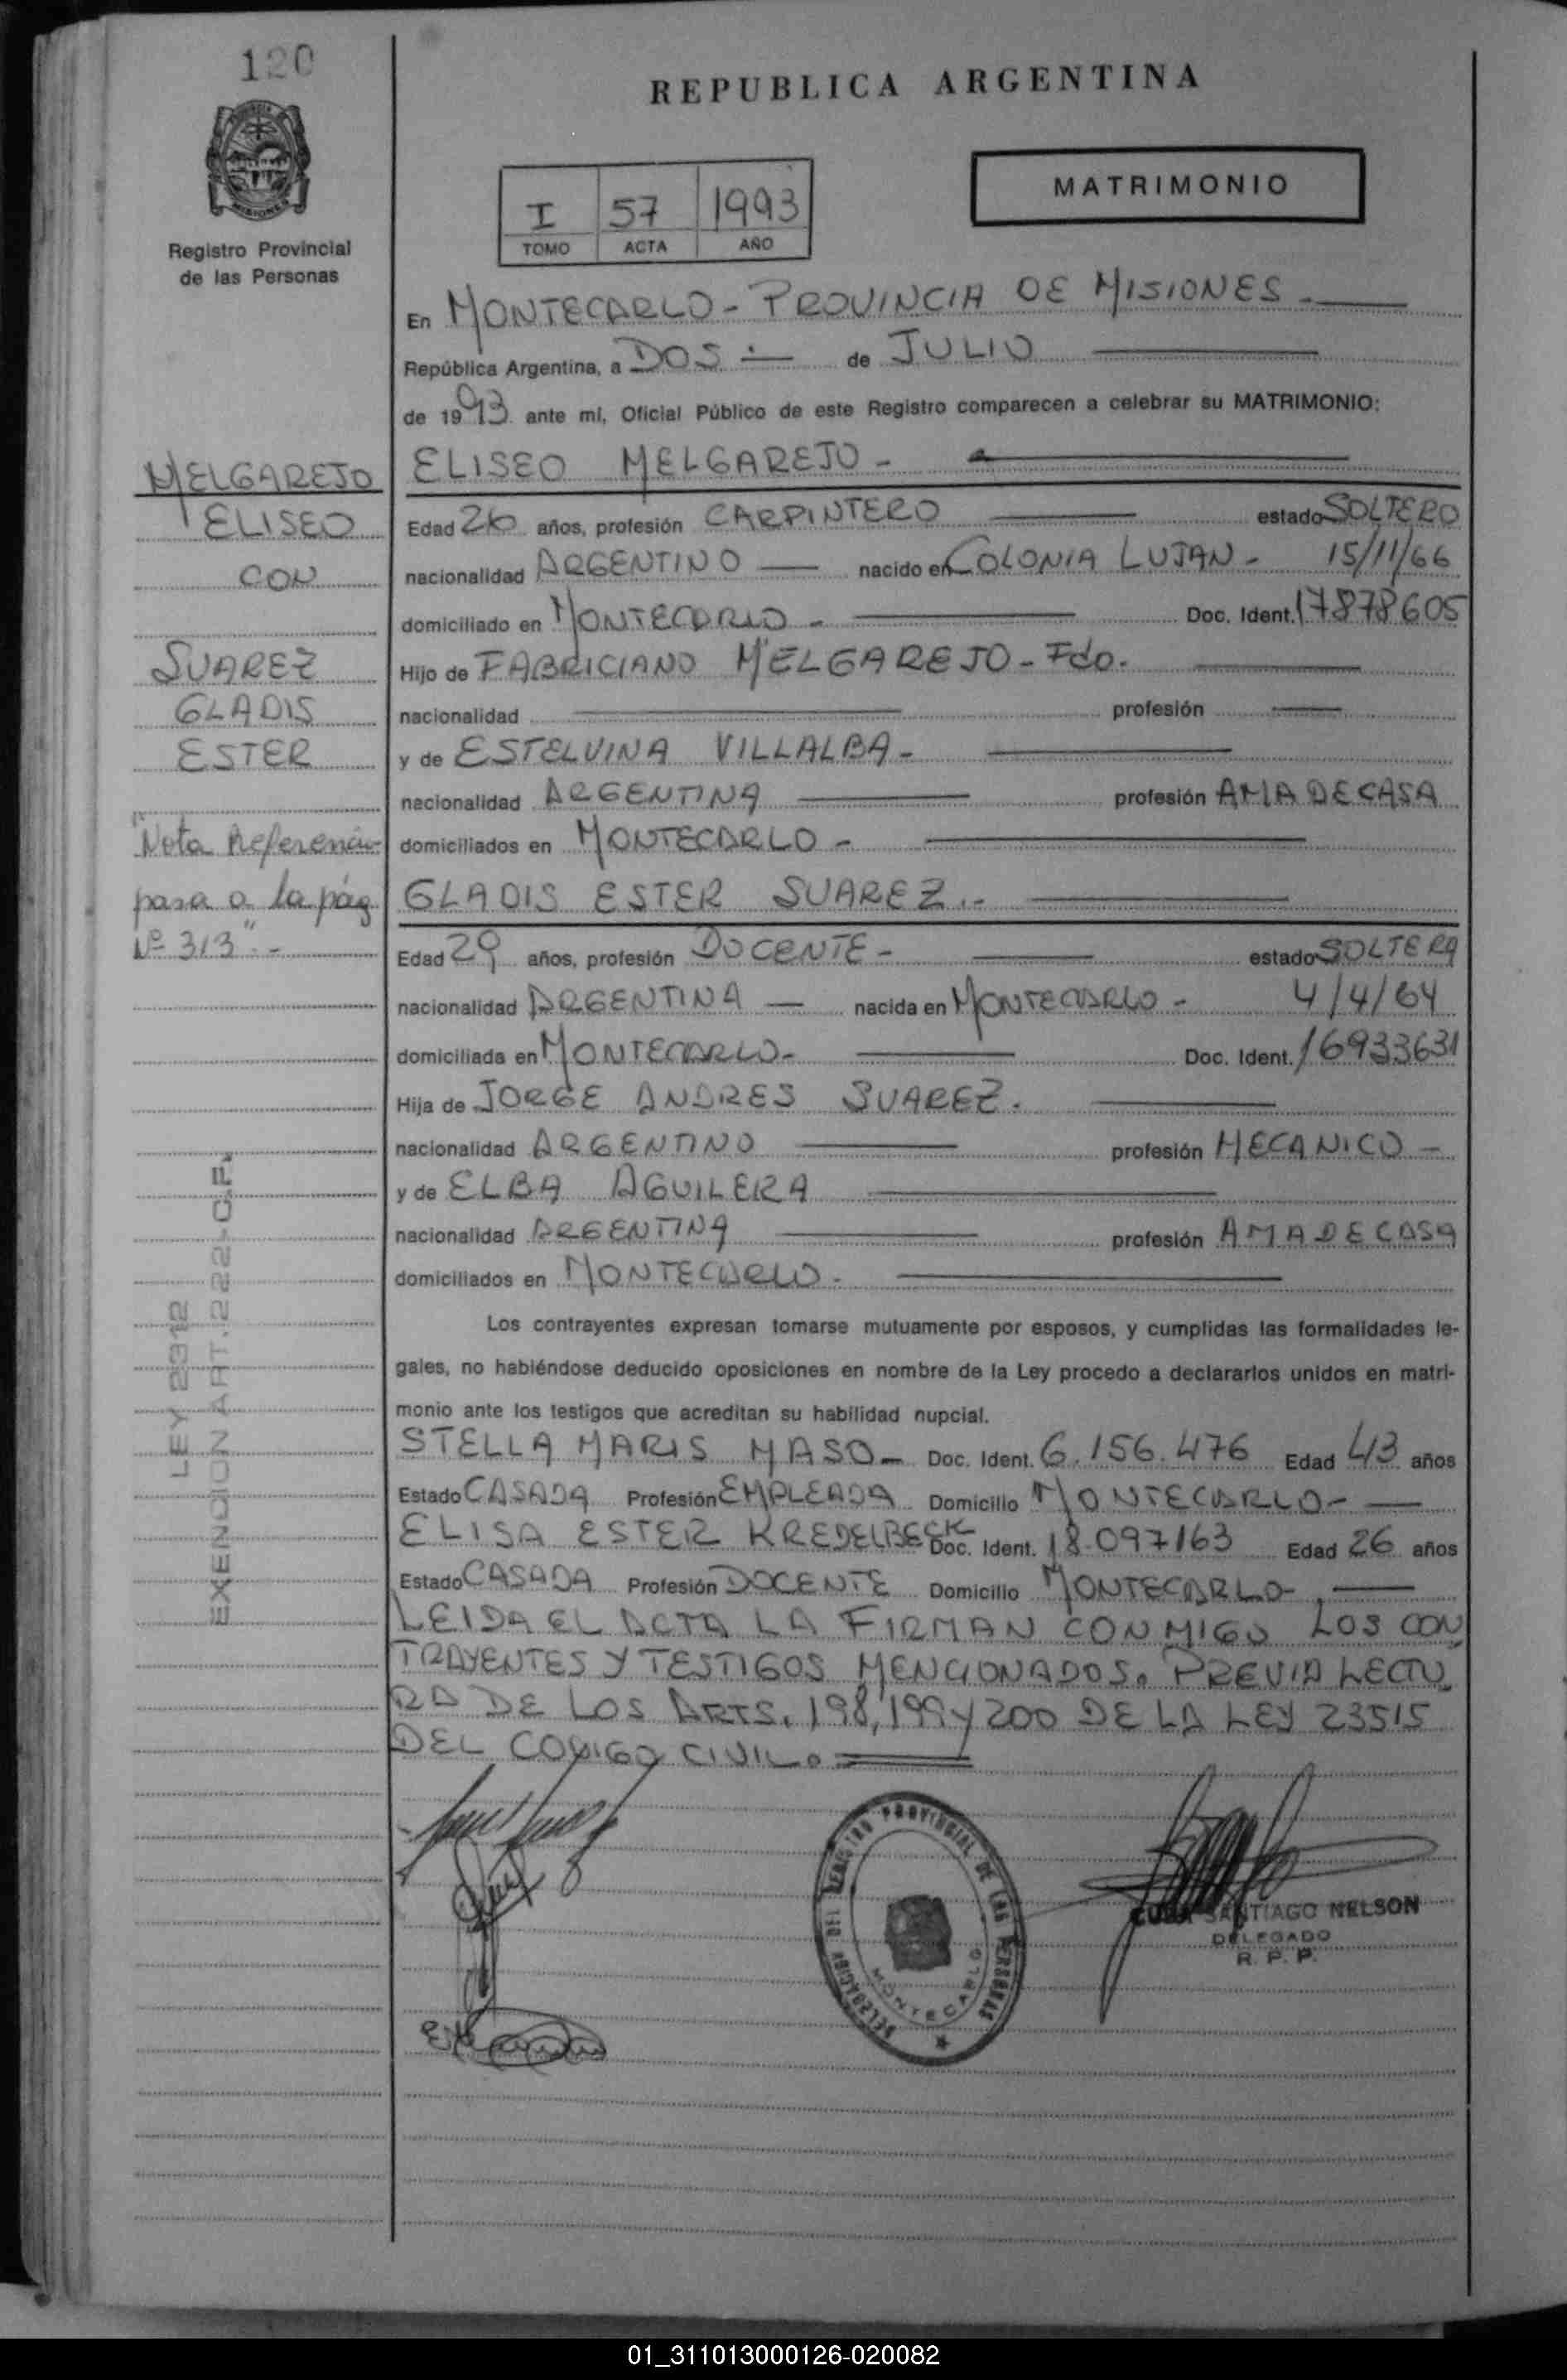 120
REPUBLICA ARGENTINA
MATRIMONIO
I 57 1993
TOMO ACTA AÑO
Registro Provincial
de las Personas
En MONTECARLO - PROVINCIA DE MISIONES -
República Argentina, a DOS .- de JULIO
de 1993 ante mí, Oficial Público de este Registro comparecen a celebrar su MATRIMONIO:
MELGAREJO
ELISEO
CON
SUAREZ
GLADIS
ESTER
"Nota Referencia
pasa a la pág
Nº 313" -
LEY 2312
EXENCION ART. 222-C.F.
ELISEO MELGAREJO -
Edad 26 años, profesión CARPINTERO estado SOLTERO
nacionalidad ARGENTINO nacido en COLONIA LUJAN - 15/11/66
domiciliado en MONTECARLO - Doc. Ident. 17878605
Hijo de FABRICIANO MELGAREJO - Fdo.
nacionalidad profesión
y de ESTELVINA VILLALBA -
nacionalidad ARGENTINA profesión AMA DE CASA
domiciliados en MONTECARLO -
GLADIS ESTER SUAREZ .-
Edad 29 años, profesión DOCENTE - estado SOLTERA
nacionalidad ARGENTINA nacida en MONTECARLO - 4/4/64
domiciliada en MONTECARLO - Doc. Ident. 16933631
Hija de JORGE ANDRES SUAREZ.
nacionalidad ARGENTINO profesión MECANICO -
y de ELBA AGUILERA
nacionalidad ARGENTINA profesión AMA DE CASA
domiciliados en MONTECARLO -
Los contrayentes expresan tomarse mutuamente por esposos, y cumplidas las formalidades le-
gales, no habiéndose deducido oposiciones en nombre de la Ley procedo a declararlos unidos en matri-
monio ante los testigos que acreditan su habilidad nupcial.
STELLA MARIS MASO - Doc. Ident. 6.156.476 Edad 43 años
Estado CASADA Profesión EMPLEADA Domicilio MONTECARLO -
ELISA ESTER KREDELBECK Doc. Ident. 18.097163 Edad 26 años
Estado CASADA Profesión DOCENTE Domicilio MONTECARLO -
LEIDA EL ACTA LA FIRMAN CONMIGO LOS CON
TRAYENTES Y TESTIGOS MENCIONADOS. PREVIA LECTU
RA DE LOS ARTS. 198, 199 y 200 DE LA LEY 23515
DEL CODIGO CIVIL.
DELEGACION DEL REGISTRO PROVINCIAL DE LAS PERSONAS
MONTECARLO
SANTIAGO NELSON
DELEGADO
R. P. P.
01_311013000126-020082